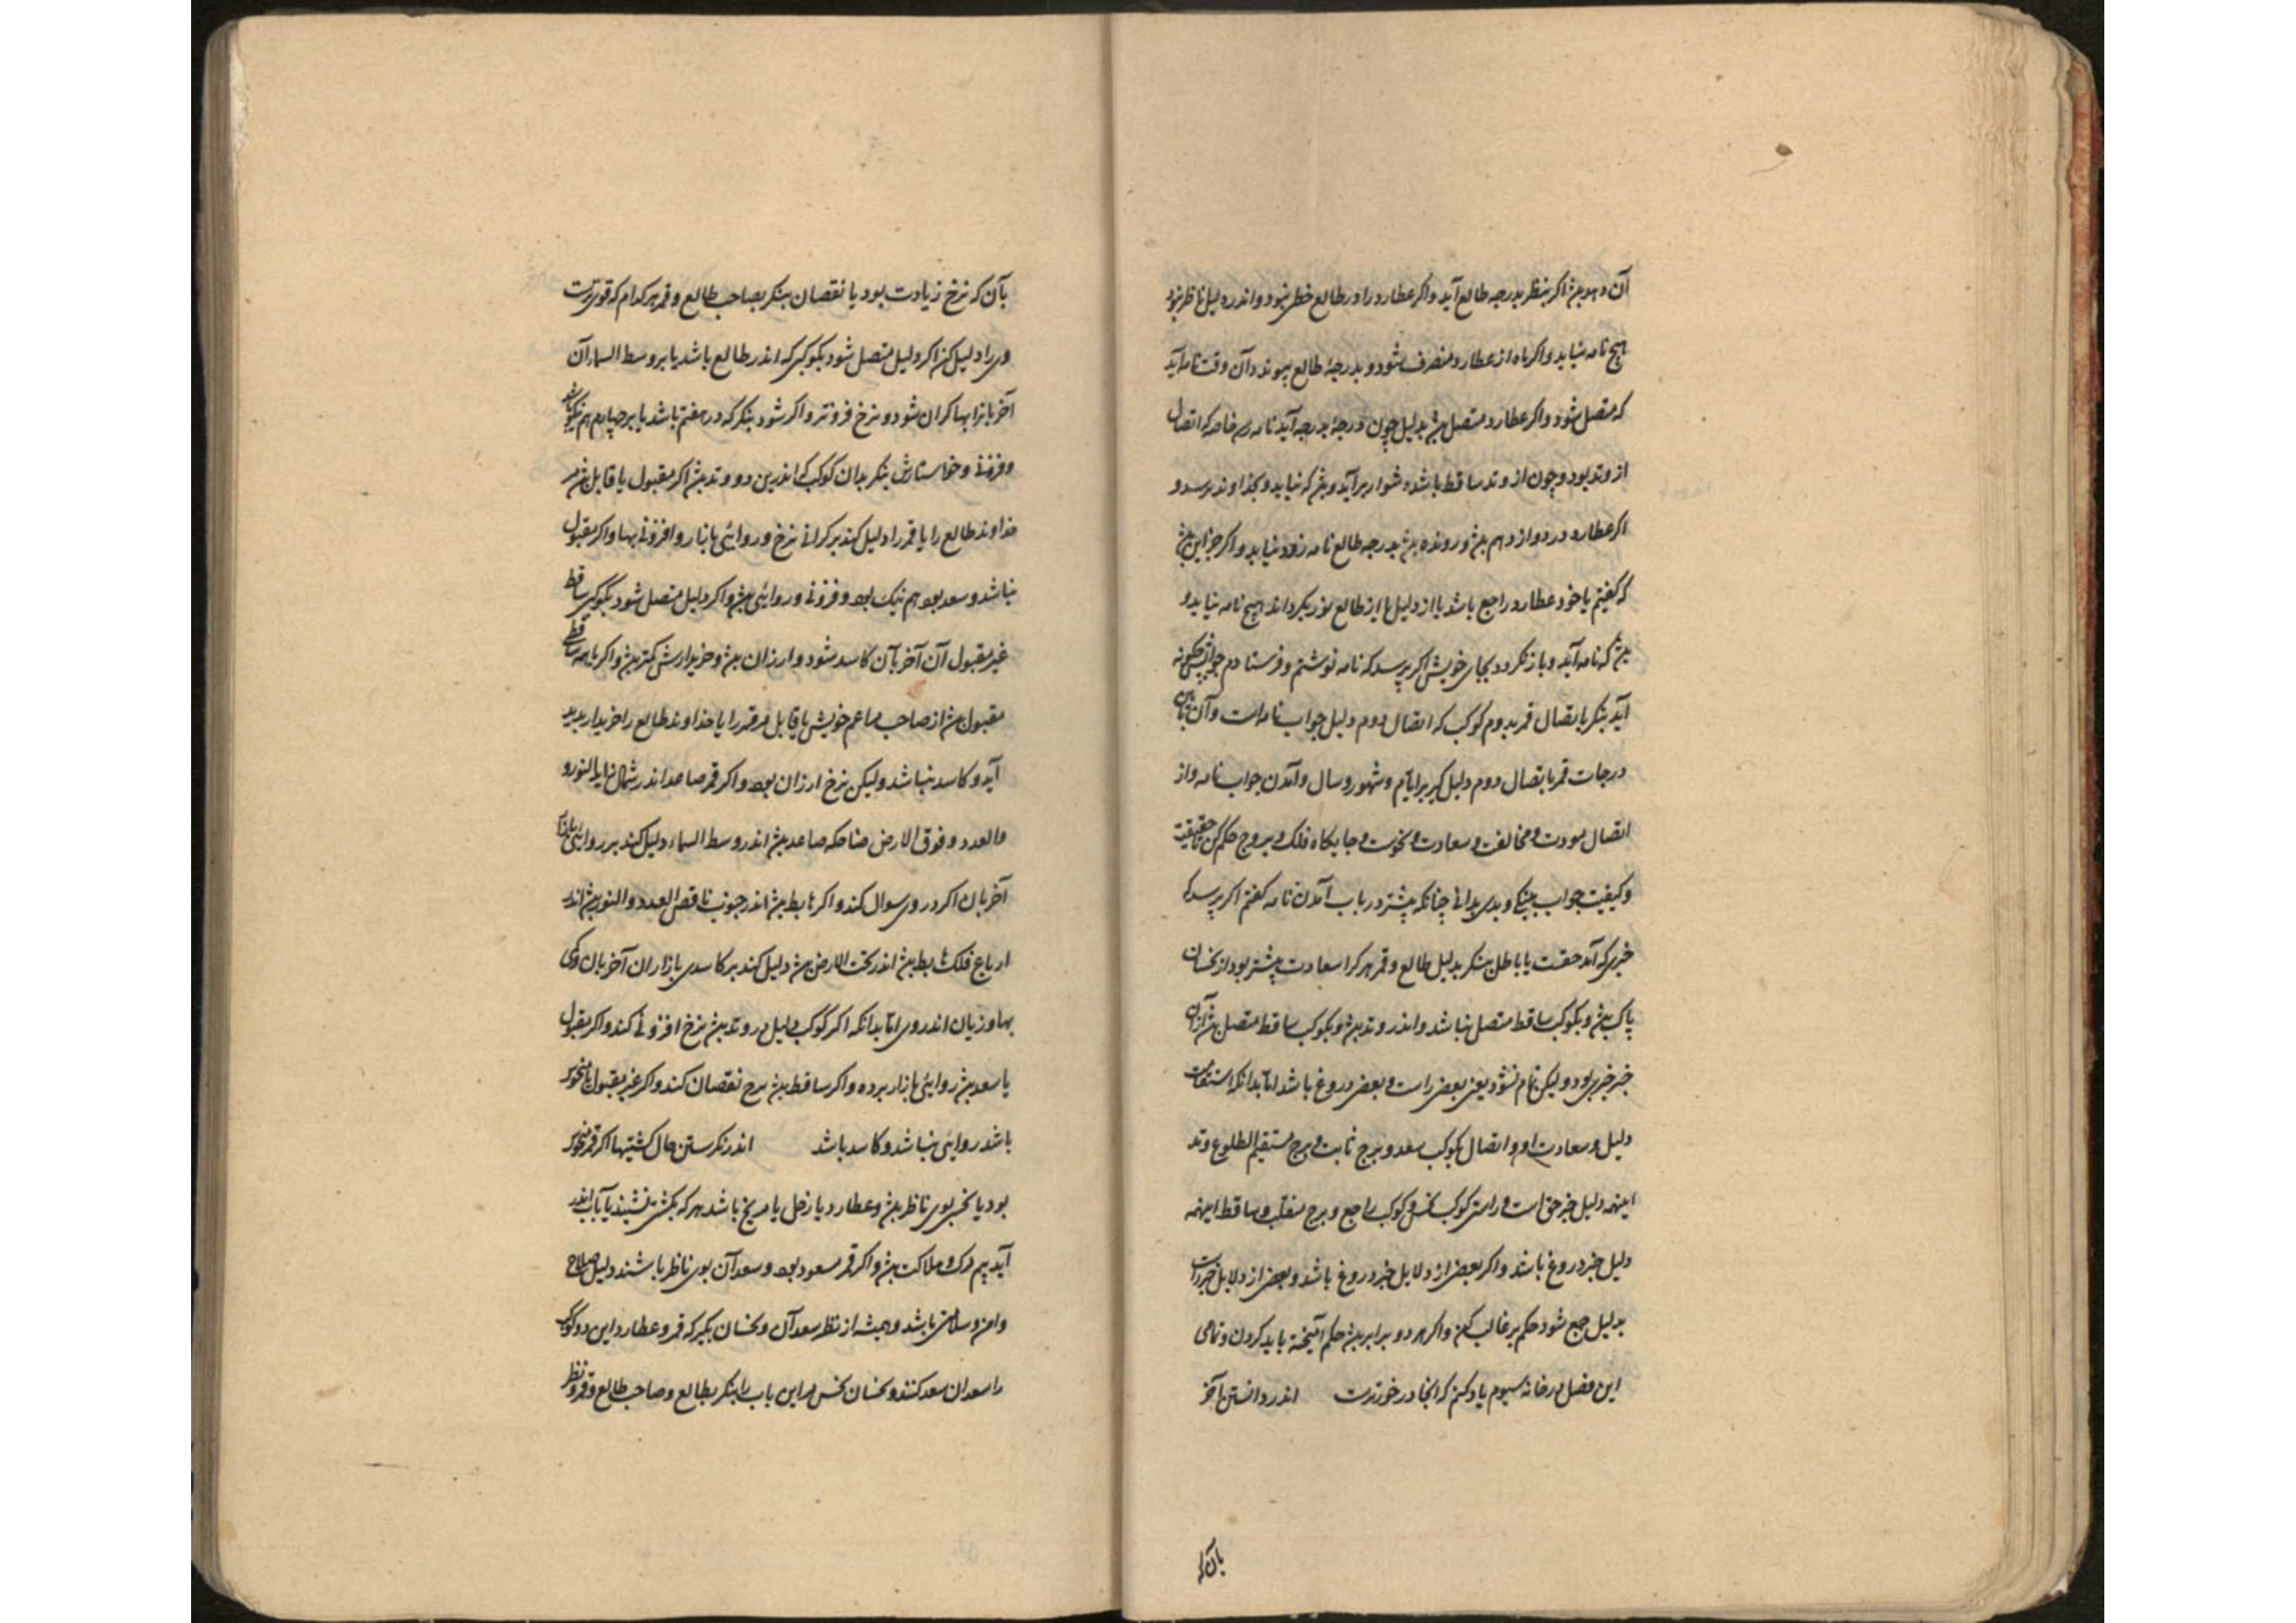 آن دهد بیش اگر بنظر بدرجه طالع آید واکر عطارد را در طالع خطی نبود واندر دلیل ناظر نبود
هیچ نامه نیاید واکر ماه از عطارد منصرف شود و بدرجهٔ طالع پیوندد آن وقت نامه آید
که متصل شود واکر عطارد متصل بدلیل چون درجهٔ بدرجه آید نامه رسد خاصه که اتصال
از وتد بود وچون از وتد ساقط باشد دشوار برآید و که نیاید و بخداوند نرسد و
اکر عطارد در دوازدهم و رونده بدرجه طالع نامه زود نیاید واکر جز این
که کفتیم یا خود عطارد راجع باشد یا از دلیل یا از طالع نور بکرداند هیچ نامه نیاید و
که نامه آید و باز نکردد بجای خویش اکر پرسد که نامه نوشتم و فرستادم جوابش
آید بنکر باتصال قمر بدوم کوکب که اتصال دوم دلیل جواب نامه است وآن
درجات قمر باتصال دوم دلیل کیر برایام و شهور و سال وآمدن جواب نامه واز
اتصال مودت و مخالفت و سعادت و نحوست و جایکاه فلک و بروج حکم کن
وکیفیت جواب نیکی و بدی بدانی چنانکه پیشتر در باب آمدن نامه کفتم اکر پرسد که
خبری که آمد حقست یا باطل بنکر بدلیل طالع و قمر هرکرا سعادت بیشتر بود از نحسان
پاک و بکوکب ساقط متصل نباشد واندر وتد و بکوکب ساقط متصل
خبر خیر بود ولیکن تمام نشود یعنی بعضی راست و بعضی دروغ باشد اما بدانکه استقامت
دلیل و سعادت او و اتصال بکوکب سعد و برج ثابت و برج مستقیم الطلوع وتد
اینهمه دلیل خبر حق است و راستی کوکب نحس و کوکب راجع و برج منقلب و ساقط اینهمه
دلیل خبر دروغ باشد واکر بعضی از دلایل خبر دروغ باشد و بعضی از دلایل خبر راست
بدلیل جمع شود حکم بر غالب کن واکر هر دو برابر حکم آمیخته باید کردن و تمامی
این فصل در خانه سیوم یاد کنم که آنجا در خورترست اندر دانستن آخر
بان را
بآن که نرخ زیادت بود یا نقصان بنکر بصاحب طالع و قمر هرکدام که قوی ترست
وی را دلیل کن اکر دلیل متصل شود بکوکبی که اندر طالع باشد یا بر وسط السماء آن
آخر بانرا بها کران شود و نرخ فزونتر واکر شود بنکر که در هفتم باشد یا بر چهارم هم نیکو باشد
وفزونی و خواستارش بنکر بدان کوکب که اندرین دو وتد اکر مقبول یا قابل
خداوند طالع را یا قمر را دلیل کند بر کرانی نرخ و روایی بازار و افزونی بها واکر مقبول
نباشد و سعد بود هم نیک بود و فزونی و روایی واکر دلیل متصل شود بکوکبی ساقط
غیر مقبول آن آخر بآن کاسد شود و ارزان و خریدارش کمتر واکر با همه ساقطی
مقبول از صاحب خویش یا قابل مر قمر را یا خداوند طالع را خریدار پدید
آید و کاسد نباشد ولیکن نرخ ارزان بود واکر قمر صاعد اندر شمال زاید النور و
والعدد و فوق الارض صاعد اندر وسط السماء دلیل کند بر روایی بازار
آخر بان اکر در وی سوال کند واکر هابط اندر جنوب ناقص العدد والنور
ارباع فلک هابط اندر تحت الارض دلیل کند بر کاسدی بازار آن آخر بان و کمی
بها و زیان اندر وی اما بدانکه اکر کوکب دلیل در وتد نرخ افزونی کند واکر مقبول
یا سعد روایی بازار برده واکر ساقط نرخ نقصان کند واکر غیر مقبول یا منحوس
باشد روایی نباشد و کاسد باشد اندر نکرستن حال کشتیها اکر قمر منحوس
بود یا نحس بوی ناظر و عطارد یا زحل یا مریخ باشد هر که بکشتی نشیند یا بآب اندر
آید بیم مرک و هلاکت واکر قمر مسعود بود و سعدان بوی ناظر باشند دلیل صلاح
وامن و سلامتی باشد و همیشه از نظر سعدان و نحسان بکیر که قمر و عطارد این دو کوکب
را سعدان سعد کنند و نحسان نحس در این باب بنکر بطالع و صاحب طالع و قمر و نظر